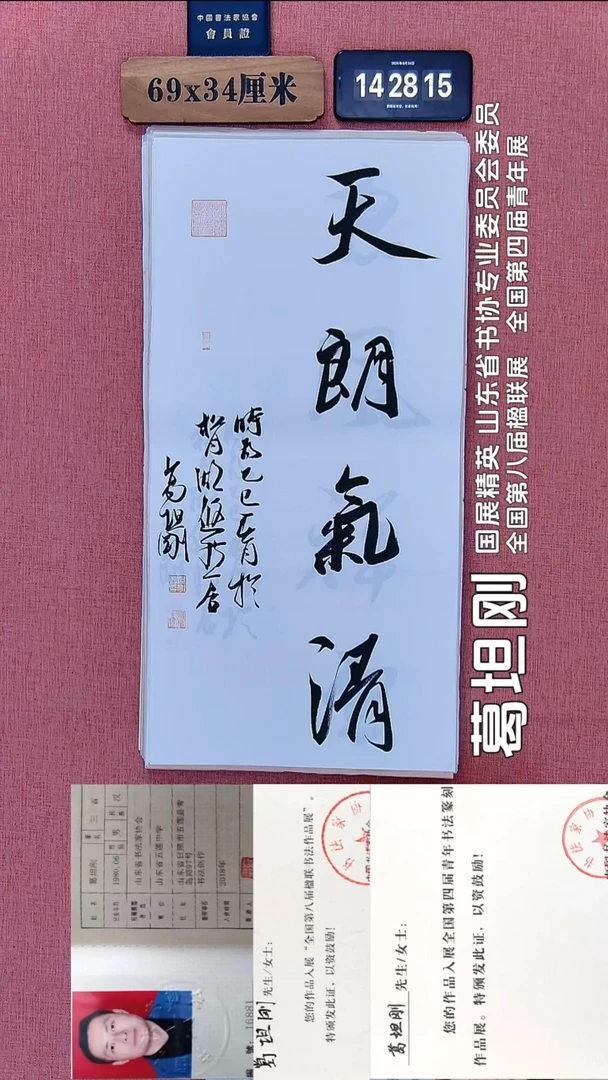 中國書法家協會
會員證
69x34厘米
14 28 15
天朗氣清
時在乙巳
葛坦刚
国展精英 山东省书协专业委员会委员
全国第八届楹联展 全国第四届青年展
葛坦刚
姓名 葛坦刚
1980.06
性别 男
民族 汉
山东省书法家协会
山东省五莲中学
书法创作
2018年
编号：16881
葛坦刚 先生/女士：
您的作品入展“全国第八届楹联书法作品展”。
特颁发此证，以资鼓励！
葛坦刚 先生/女士：
您的作品入展全国第四届青年书法篆刻
作品展。特颁发此证，以资鼓励！